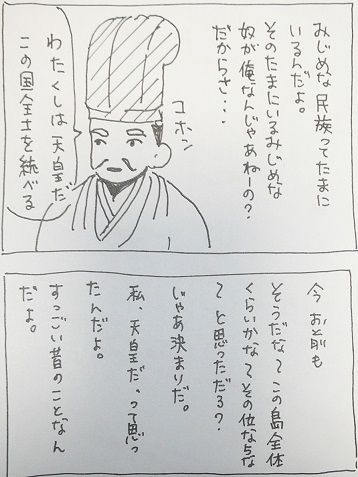 みじめな民族ってたまに
いるんだよ。
そのたまにいるみじめな
奴が俺なんじゃあねーの?
だからさ・・・
コホン
わたくしは天皇だ
この国全土を統べる
今 お前も
そうだな〜この島全体
くらいかな〜その位ならな
〜と思っただろ?
じゃあ決まりだ。
私、天皇だ、って思っ
たんだよ。
すっごい昔のことなん
だよ。